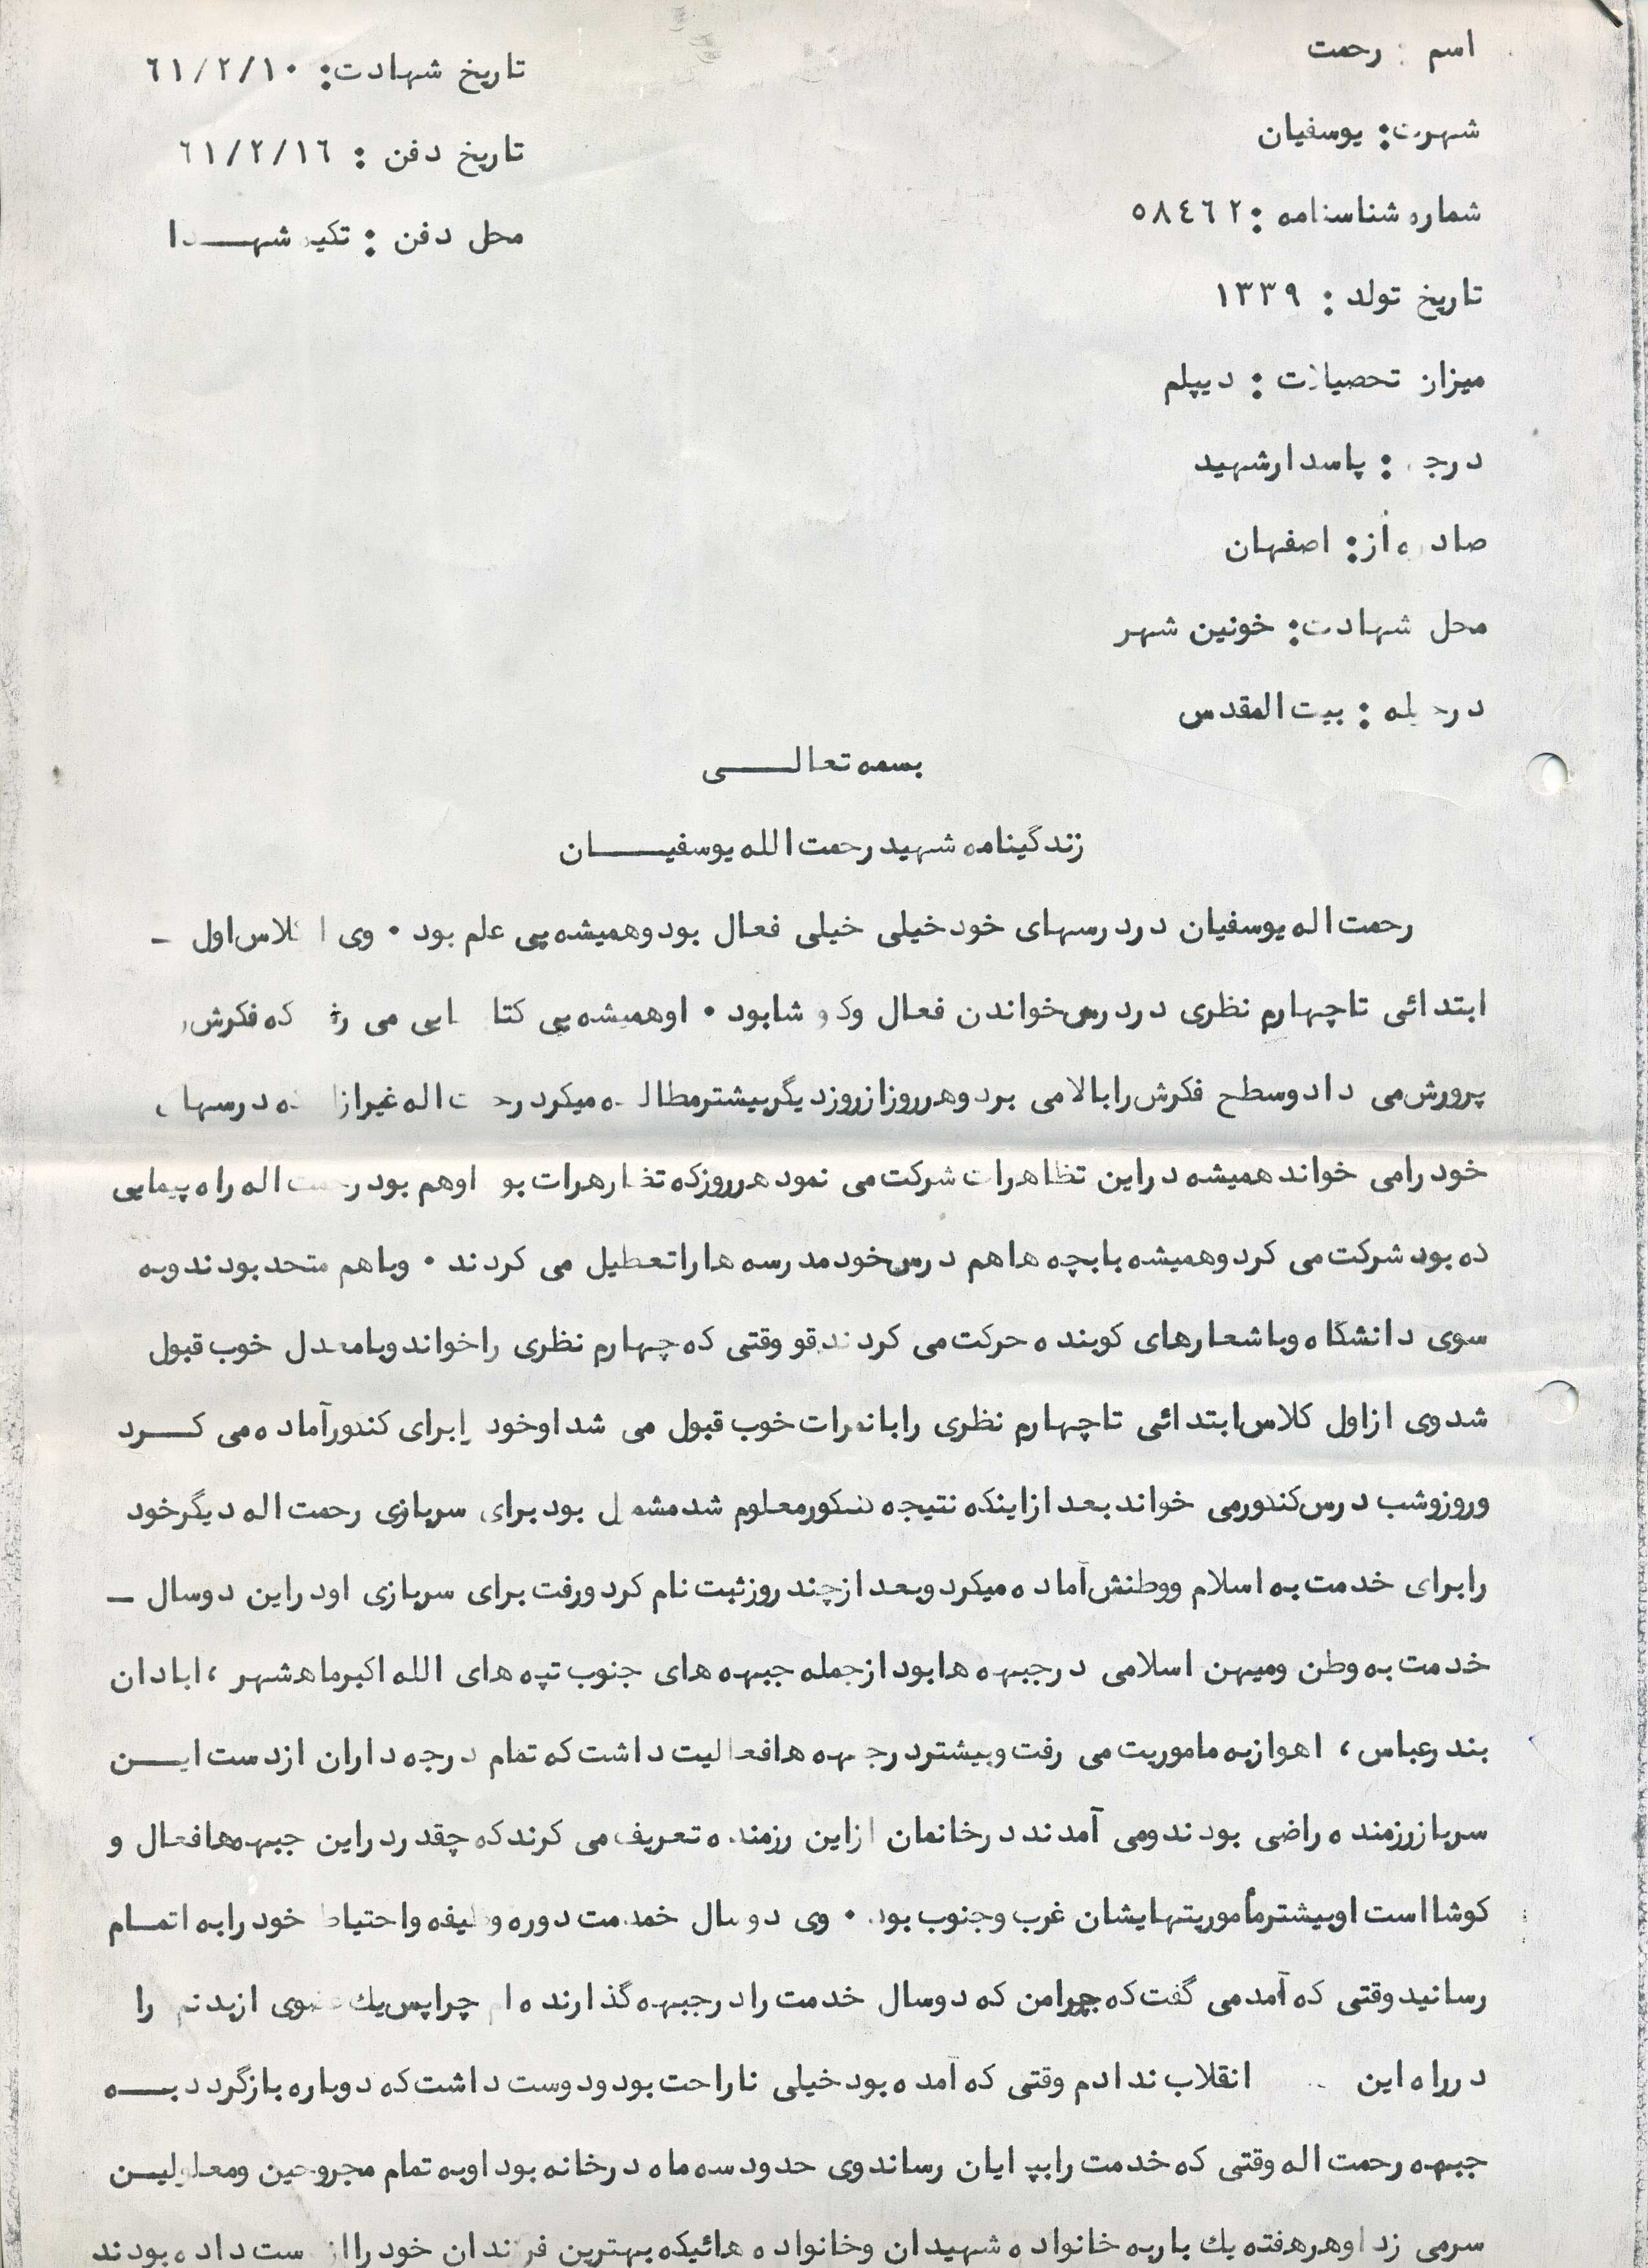 اسم : رحمت
شهرت: یوسفیان
شماره شناسنامه : ٥٨٤٦٢
تاریخ تولد : ١٣٣٩
میزان تحصیلات : دیپلم
درجه : پاسدارشهید
صادره از: اصفهان
محل شهادت: خونین شهر
درحمله : بیت المقدس
تاریخ شهادت: ٦١/٢/١٠
تاریخ دفن : ٦١/٢/١٦
محل دفن : تکیه شهدا
بسمه تعالی
زندگینامه شهید رحمت الله یوسفیان
رحمت اله یوسفیان دردرسهای خود خیلی خیلی فعال بود وهمیشه پی علم بود . وی از کلاس اول –
ابتدائی تاچهارم نظری دردرس خواندن فعال وکوشابود . اوهمیشه پی کتابهایی می رفت که فکرش
پرورش می داد وسطح فکرش رابالامی برد وهرروز از روزدیگربیشترمطالعه میکرد رحمت اله غیرازاینکه درسهای
خود رامی خواند همیشه دراین تظاهرات شرکت می نمود هرروزکه تظارهرات بود اوهم بود رحمت اله راه پیمایی
که بود شرکت می کرد وهمیشه بابچه هاهم درس خود مدرسه هاراتعطیل می کردند . وباهم متحد بودند وبه
سوی دانشگاه وباشعارهای کوبنده حرکت می کردند قو وقتی که چهارم نظری راخواند وبامعدل خوب قبول
شد وی ازاول کلاس ابتدائی تاچهارم نظری رابانمرات خوب قبول می شد اوخود رابرای کنکورآماده می کرد
وروزوشب درس کنکورمی خواند بعد ازاینکه نتیجه کنکورمعلوم شد مشمول بود برای سربازی رحمت اله دیگرخود
رابرای خدمت به اسلام ووطنش آماده میکرد وبعد ازچند روزثبت نام کرد ورفت برای سربازی اود راین دوسال –
خدمت به وطن ومیهن اسلامی درجبهه هابود ازجمله جبهه های جنوب تپه های الله اکبرماهشهر ، ابادان
بندرعباس ، اهوازبه ماموریت می رفت وبیشترد رجبهه هافعالیت داشت که تمام درجه داران ازدست این
سربازرزمنده راضی بودند ومی آمدند درخانمان ازاین رزمنده تعریف می کرندکه چقدرد راین جبهه هافعال و
کوشااست اوبیشترمأموریتهایشان غرب وجنوب بود . وی دوسال خدمت دوره وظیفه واحتیاط خود رابه اتمام
رسانید وقتی که آمد می گفت که چرامن که دوسال خدمت راد رجبهه گذارنده ام چراپس یك عضوی ازبدنم را
درراه این انقلاب ندادم وقتی که آمده بود خیلی ناراحت بود ودوست داشت که دوباره بازگردد به
جبهه رحمت اله وقتی که خدمت رابپ ایان رساند وی حدود سه ماه درخانه بود اوبه تمام مجروحین ومعلولین
سرمی زد اوهرهفته یك باربه خانواده شهیدان وخانواده هائیکه بهترین فرزندان خود راازدست داده بودند